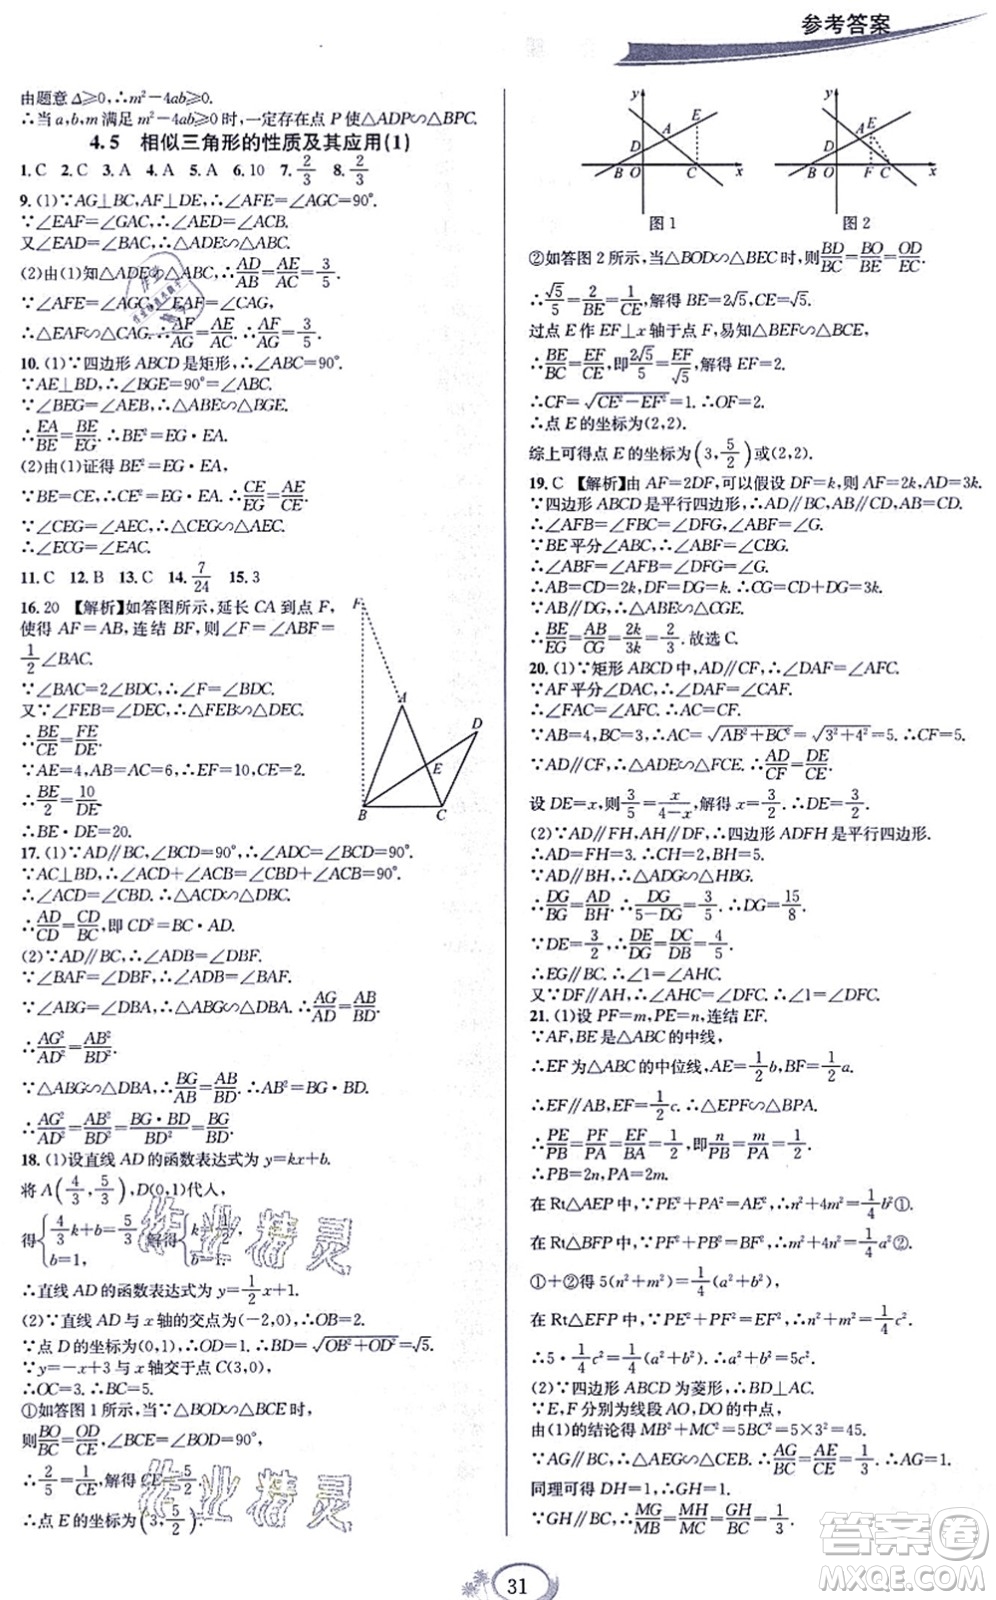 参考答案
由题意 Δ⩾0,∴m²-4ab⩾0.
∴当 a,b,m 满足 m²-4ab⩾0 时,一定存在点 P 使△ADP∽△BPC.
4.5 相似三角形的性质及其应用(1)
1.C 2.C 3.A 4.A 5.A 6.10 7.2/3 8.2/3
9.(1)∵AG⊥BC,AF⊥DE,∴∠AFE=∠AGC=90°.
∵∠EAF=∠GAC,∴∠AED=∠ACB.
又∠EAD=∠BAC,∴△ADE∽△ABC.
(2)由(1)知△ADE∽△ABC,∴AD/AB=AE/AC=3/5.
∵∠AFE=∠AGC,∠EAF=∠CAG,
∴△EAF∽△CAG.∴AF/AG=AE/AC.∴AF/AG=3/5.
10.(1)∵四边形 ABCD 是矩形,∴∠ABC=90°.
∵AE⊥BD,∴∠BGE=90°=∠ABC.
∵∠BEG=∠AEB,∴△ABE∽△BGE.
∴EA/BE=BE/EG.∴BE²=EG·EA.
(2)由(1)证得 BE²=EG·EA.
∵BE=CE,∴CE²=EG·EA.∴CE/EG=AE/CE.
∵∠CEG=∠AEC,∴△CEG∽△AEC.
∴∠ECG=∠EAC.
11.C 12.B 13.C 14.7/24 15.3
16.20 【解析】如答图所示,延长 CA 到点 F,
使得 AF=AB,连结 BF,则∠F=∠ABF=
1/2∠BAC.
∵∠BAC=2∠BDC,∴∠F=∠BDC.
又∵∠FEB=∠DEC,∴△FEB∽△DEC.
∴BE/CE=FE/DE.
∵AE=4,AB=6,∴EF=10,CE=2.
∴BE/2=10/DE.
∴BE·DE=20.
F A D E B C
17.(1)∵AD∥BC,∠BCD=90°,∴∠ADC=∠BCD=90°.
∵AC⊥BD,∴∠ACD+∠ACB=∠CBD+∠ACB=90°.
∴∠ACD=∠CBD.∴△ACD∽△DBC.
∴AD/CD=CD/BC,即 CD²=BC·AD.
(2)∵AD∥BC,∴∠ADB=∠DBF.
∵∠BAF=∠DBF,∴∠ADB=∠BAF.
∵∠ABG=∠DBA,∴△ABG∽△DBA.∴AG/AD=AB/BD.
∴AG²/AD²=AB²/BD².
∵△ABG∽△DBA,∴BG/AB=AB/BD.∴AB²=BG·BD.
∴AG²/AD²=AB²/BD²=BG·BD/BD²=BG/BD.
18.(1)设直线 AD 的函数表达式为 y=kx+b.
将 A(4/3,5/3),D(0,1)代入,
得{4/3k+b=5/3, b=1, 解得{k=1/2, b=1.
∴直线 AD 的函数表达式为 y=1/2x+1.
(2)∵直线 AD 与 x 轴的交点为(-2,0),∴OB=2.
∵点 D 的坐标为(0,1),∴OD=1.∴BD=√(OB²+OD²)=√5.
∵y=-x+3 与 x 轴交于点 C(3,0),
∴OC=3.∴BC=5.
①如答图 1 所示,当∵△BOD∽△BCE 时,
则BO/BC=OD/CE,∠BCE=∠BOD=90°,
∴2/5=1/CE,解得 CE=5/2.
∴点 E 的坐标为(3,5/2).
y E A D B O C x
y A E D B O F C x
图 1 图 2
②如答图 2 所示,当△BOD∽△BEC 时,则BD/BC=BO/BE=OD/CE
∴√5/5=2/BE=1/CE,解得 BE=2√5,CE=√5.
过点 E 作 EF⊥x 轴于点 F,易知△BEF∽△BCE,
∴BE/BC=EF/CE,即2√5/5=EF/√5,解得 EF=2.
∴CF=√(CE²-EF²)=1.∴OF=2.
∴点 E 的坐标为(2,2).
综上可得点 E 的坐标为(3,5/2)或(2,2).
19.C 【解析】由 AF=2DF,可以假设 DF=k,则 AF=2k,AD=3k.
∵四边形 ABCD 是平行四边形,∴AD∥BC,AB∥CD,AB=CD.
∴∠AFB=∠FBC=∠DFG,∠ABF=∠G.
∵BE 平分∠ABC,∴∠ABF=∠CBG.
∴∠ABF=∠AFB=∠DFG=∠G.
∴AB=CD=2k,DF=DG=k.∴CG=CD+DG=3k.
∵AB∥DG,∴△ABE∽△CGE.
∴BE/EG=AB/CG=2k/3k=2/3.故选 C.
20.(1)∵矩形 ABCD 中,AD∥CF,∴∠DAF=∠AFC.
∵AF 平分∠DAC,∴∠DAF=∠CAF.
∴∠FAC=∠AFC.∴AC=CF.
∵AB=4,BC=3,∴AC=√(AB²+BC²)=√(3²+4²)=5.∴CF=5.
∵AD∥CF,∴△ADE∽△FCE.∴AD/CF=DE/CE.
设 DE=x,则3/5=x/(4-x),解得 x=3/2.∴DE=3/2.
(2)∵AD∥FH,AH∥DF,∴四边形 ADFH 是平行四边形.
∴AD=FH=3.∴CH=2.∴BH=5.
∵AD∥BH,∴△ADG∽△HBG.
∴DG/BG=AD/BH.∴DG/(5-DG)=3/5.∴DG=15/8.
∵DE=3/2,∴DE/DG=DC/BD=4/5.
∴EG∥BC.∴∠1=∠AHC.
又∵DF∥AH,∴∠AHC=∠DFC.∴∠1=∠DFC.
21.(1)设 PF=m,PE=n,连结 EF.
∵AF,BE 是△ABC 的中线,
∴EF 为△ABC 的中位线,AE=1/2b,BF=1/2a.
∴EF∥AB,EF=1/2c.∴△EPF∽△BPA.
∴PE/PB=PF/PA=EF/BA=1/2,即n/PB=m/PA=1/2.
∴PB=2n,PA=2m.
在 Rt△AEP 中,∵PE²+PA²=AE²,∴n²+4m²=1/4b²①.
在 Rt△BFP 中,∵PF²+PB²=BF²,∴m²+4n²=1/4a²②.
①+②得 5(n²+m²)=1/4(a²+b²).
在 Rt△EFP 中,∵PE²+PF²=EF²,∴n²+m²=1/4c².
∴5·1/4c²=1/4(a²+b²).∴a²+b²=5c².
(2)∵四边形 ABCD 为菱形,∴BD⊥AC.
∵E,F 分别为线段 AO,DO 的中点,
由(1)的结论得 MB²+MC²=5BC²=5×3²=45.
∵AG∥BC,∴△AEG∽△CEB.∴AG/BC=AE/CE=1/3.∴AG=1.
同理可得 DH=1,∴GH=1.
∵GH∥BC,∴MG/MB=MH/MC=GH/BC=1/3.
31
作业精灵
作业精灵
答案卷
MXQE.COM